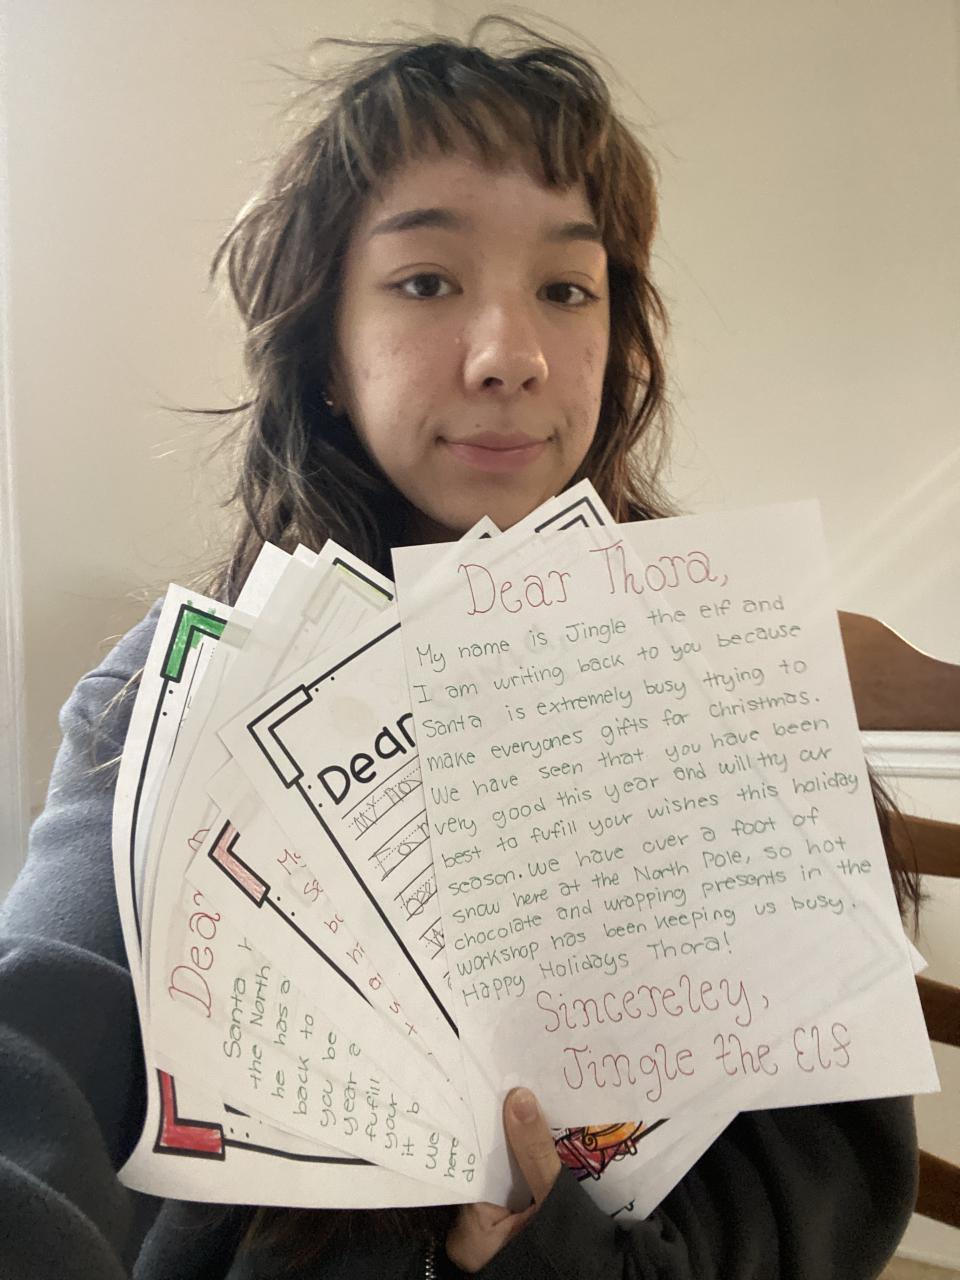 Dear Thora,
My name is Jingle the elf and
I am writing back to you because
Santa is extremely busy trying to
make everyones gifts for Christmas.
We have seen that you have been
very good this year and will try our
best to fufill your wishes this holiday
season. We have over a foot of
snow here at the North Pole, so hot
chocolate and wrapping presents in the
workshop has been keeping us busy.
Happy Holidays Thora!
Sincereley,
Jingle the Elf
Dear
Dear
Santa
the North
he has a
back to
you be
year a
fufill
your
it b
we
here
do